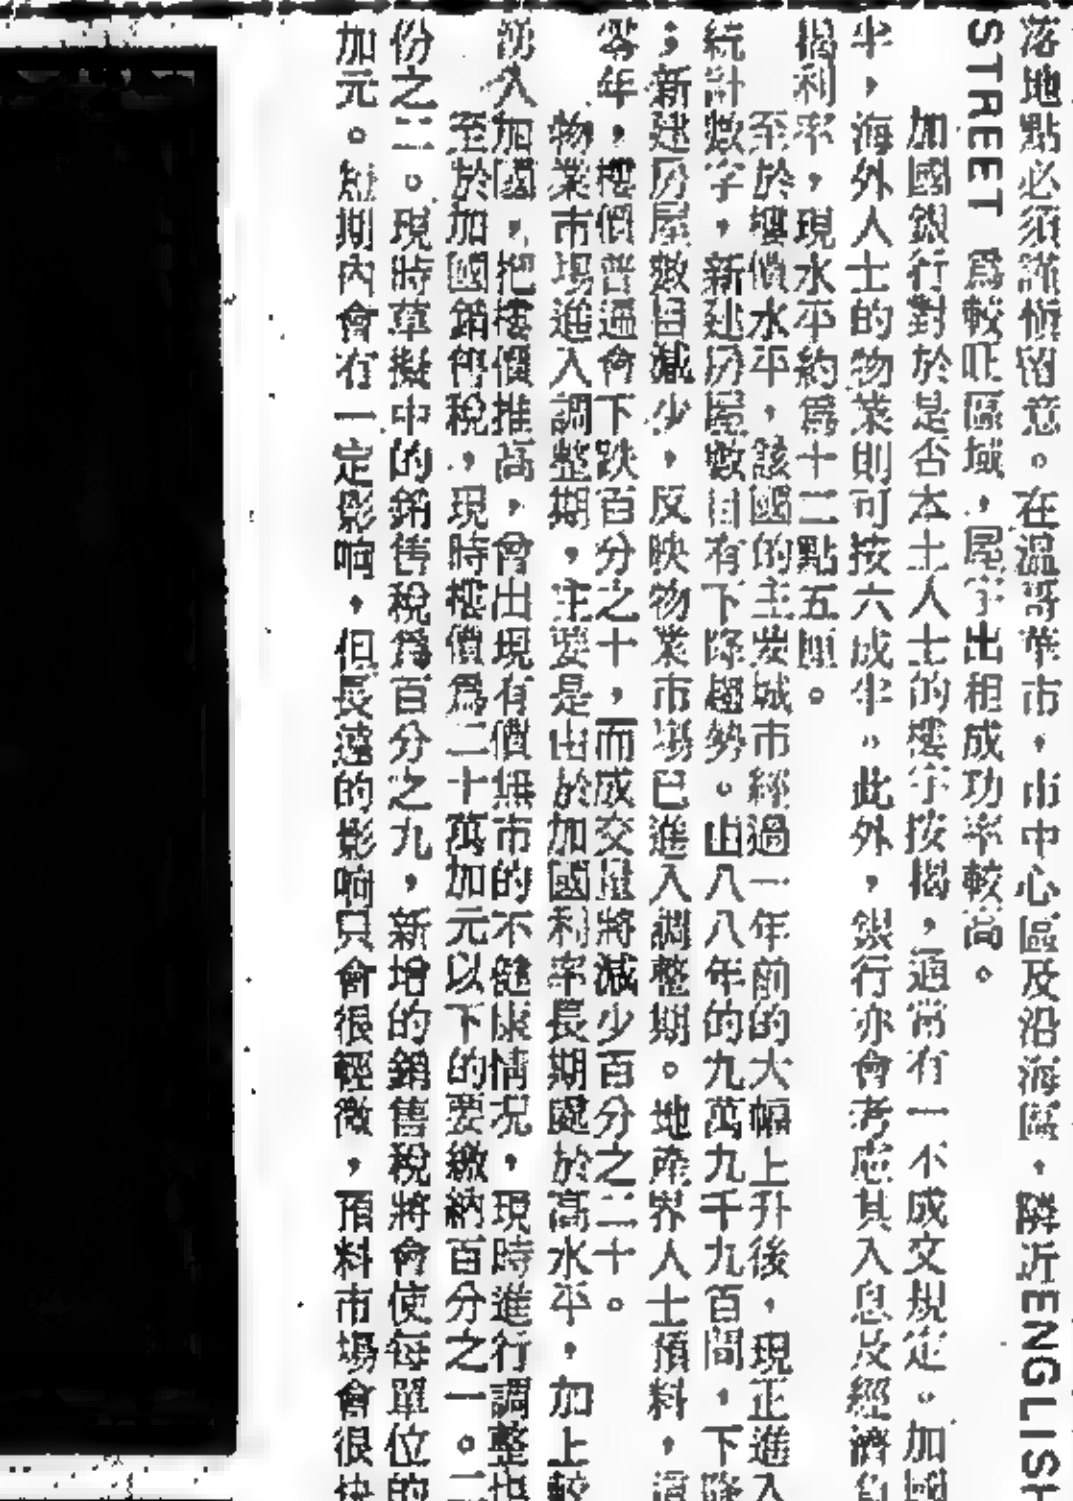 落地點必須謹慎留意。在温哥華市，市中心區及沿海區，隣近ENGLISH
STREET 爲較旺區域，屋宇出租成功率較高。
加國銀行對於是否本土人士的樓宇按揭，通常有一不成文規定。加國
半，海外人士的物業則可按六成半。此外，銀行亦會考慮其入息及經濟負
揭利率，現水平約爲十二點五厘。
至於樓價水平，該國的主要城市經過一年前的大幅上升後，現正進入
統計數字，新建房屋數目有下降趨勢。由八八年的九萬九千九百間，下降
，新建房屋數目減少，反映物業市場已進入調整期。地產界人士預料，這
零年，樓價普遍會下跌百分之十，而成交量將減少百分之二十。
物業市場進入調整期，主要是由於加國利率長期處於高水平，加上較
湧入加國，把樓價推高，會出現有價無市的不健康情况，現時進行調整也
至於加國銷售稅，現時樓價爲二十萬加元以下的要繳納百分之一。二
份之二。現時草擬中的銷售稅爲百分之九，新增的銷售稅將會使每單位的
加元。短期內會有一定影响，但長遠的影响只會很輕微，預料市場會很快